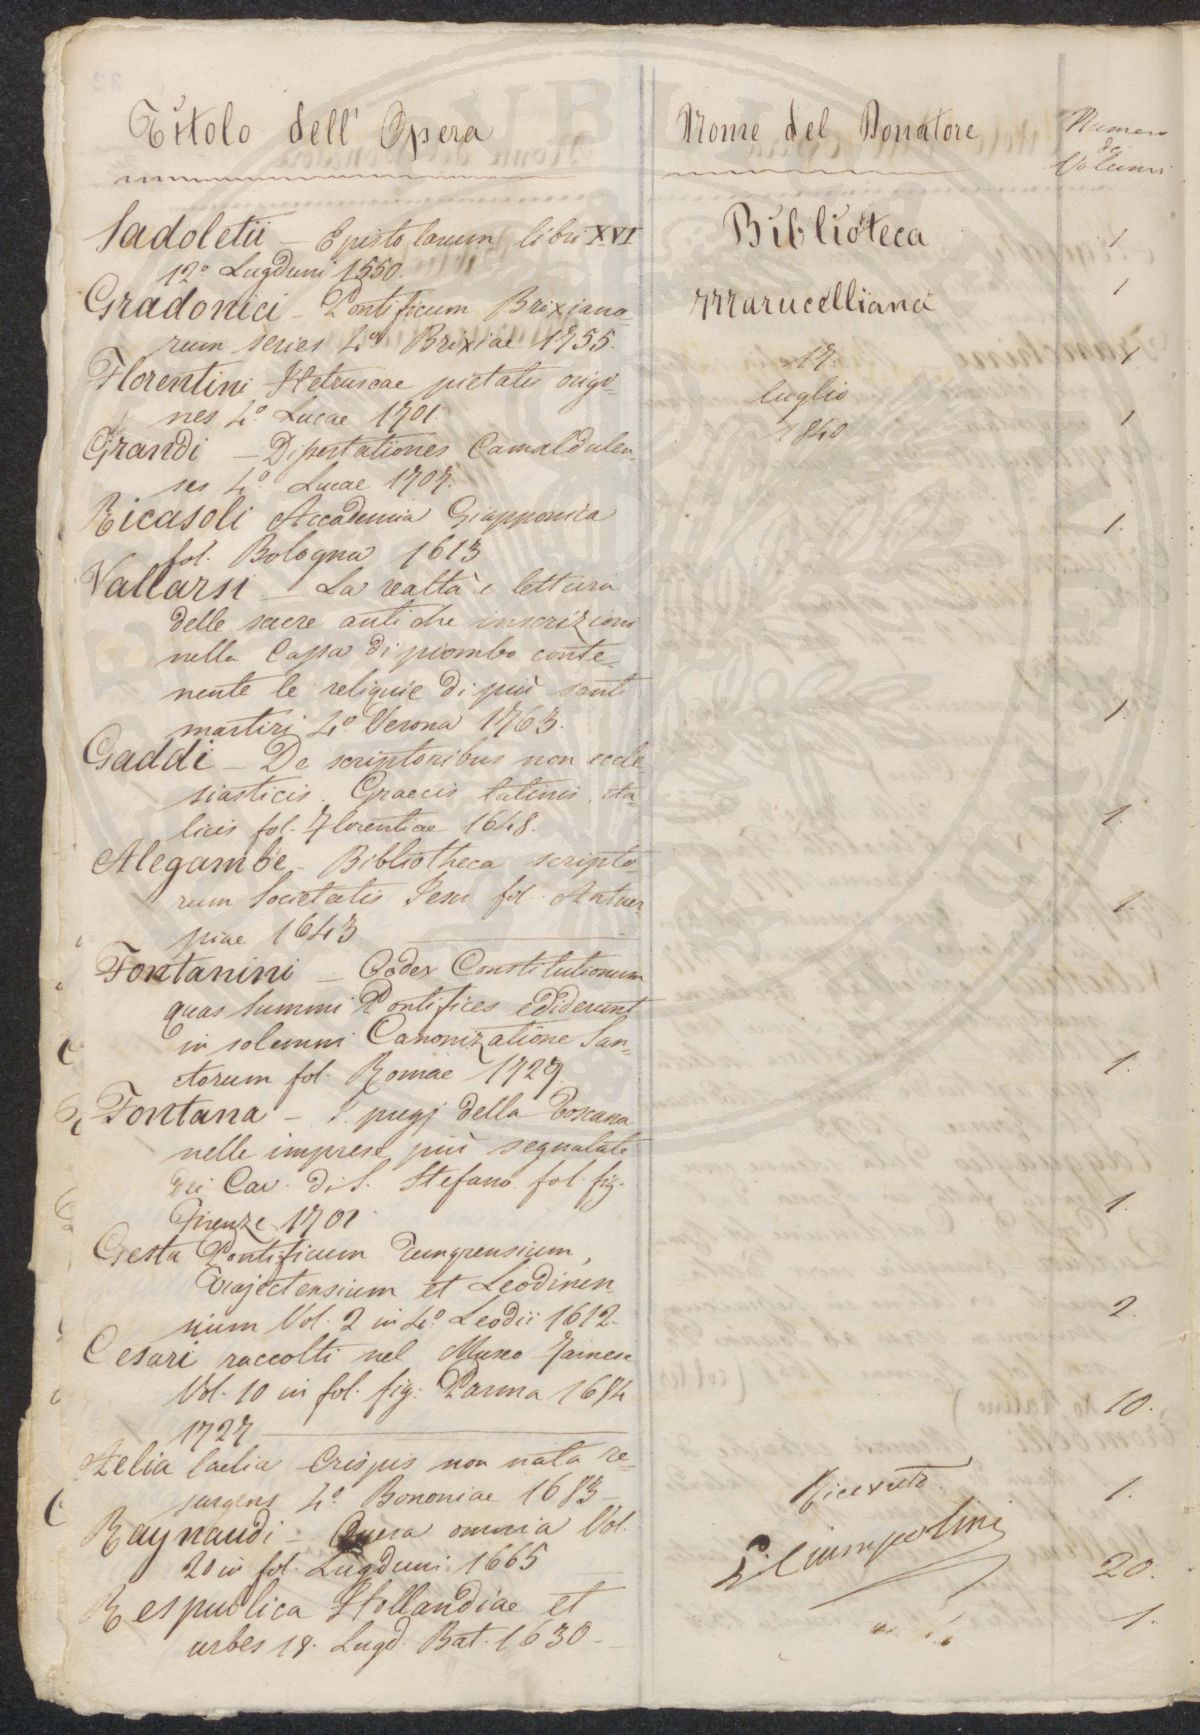 Titolo dell' Opera
Nome del Donatore
Numero
de
Volumi
Sadoletii - Epistolarum libri XVI
12.º Lugduni 1550.
1
Gradonici - Pontificum Brixiano-
rum series 4.º Brixiae 1755.
1
Florentini Hetruscae pietatis origi-
nes 4.º Lucae 1701
1
Grandi - Dissertationes Camaldulen-
ses 4.º Lucae 1707.
1
Ricasoli Accademia Giapponica
fol. Bologna 1613
1.
Vallarsi - La realtà e lettura
delle sacre antiche inscrizioni
nella Cassa di piombo conte-
nente le reliquie di più santi
martiri 4.º Verona 1763.
1.
Gaddi - De scriptoribus non eccle-
siasticis. Graecis latinis, ita-
licis fol. Florentiae 1648.
1.
Alegambe - Bibliotheca scripto-
rum Societatis Jesu fol. Antuer-
piae 1643
1.
Fontanini - Codex Constitutionum
quas summi Pontifices ediderunt
in solemni Canonizatione San-
ctorum fol. Romae 1729.
1.
Fontana - I pregj della Toscana
nelle imprese più segnalate
dei Cav. di S. Stefano fol. fig.
Firenze 1701
1.
Gesta Pontificum Tungrensium,
Trajectensium et Leodinen-
sium Vol. 2 in 4.º Leodii 1612-
2.
Cesari raccolti nel Museo Farnese
Vol. 10 in fol. fig: Parma 1694
1727
10.
Aelia laelia Crispis non nata re-
surgens 4.º Bononiae 1683-
1.
Raynaudi - Opera omnia Vol.
20 in fol. Lugduni 1665
20.
Respublica Hollandiae et
urbes 18. Lugd. Bat. 1630-
1.
Biblioteca
Marucelliana
17.
luglio
1840
Ricevuto